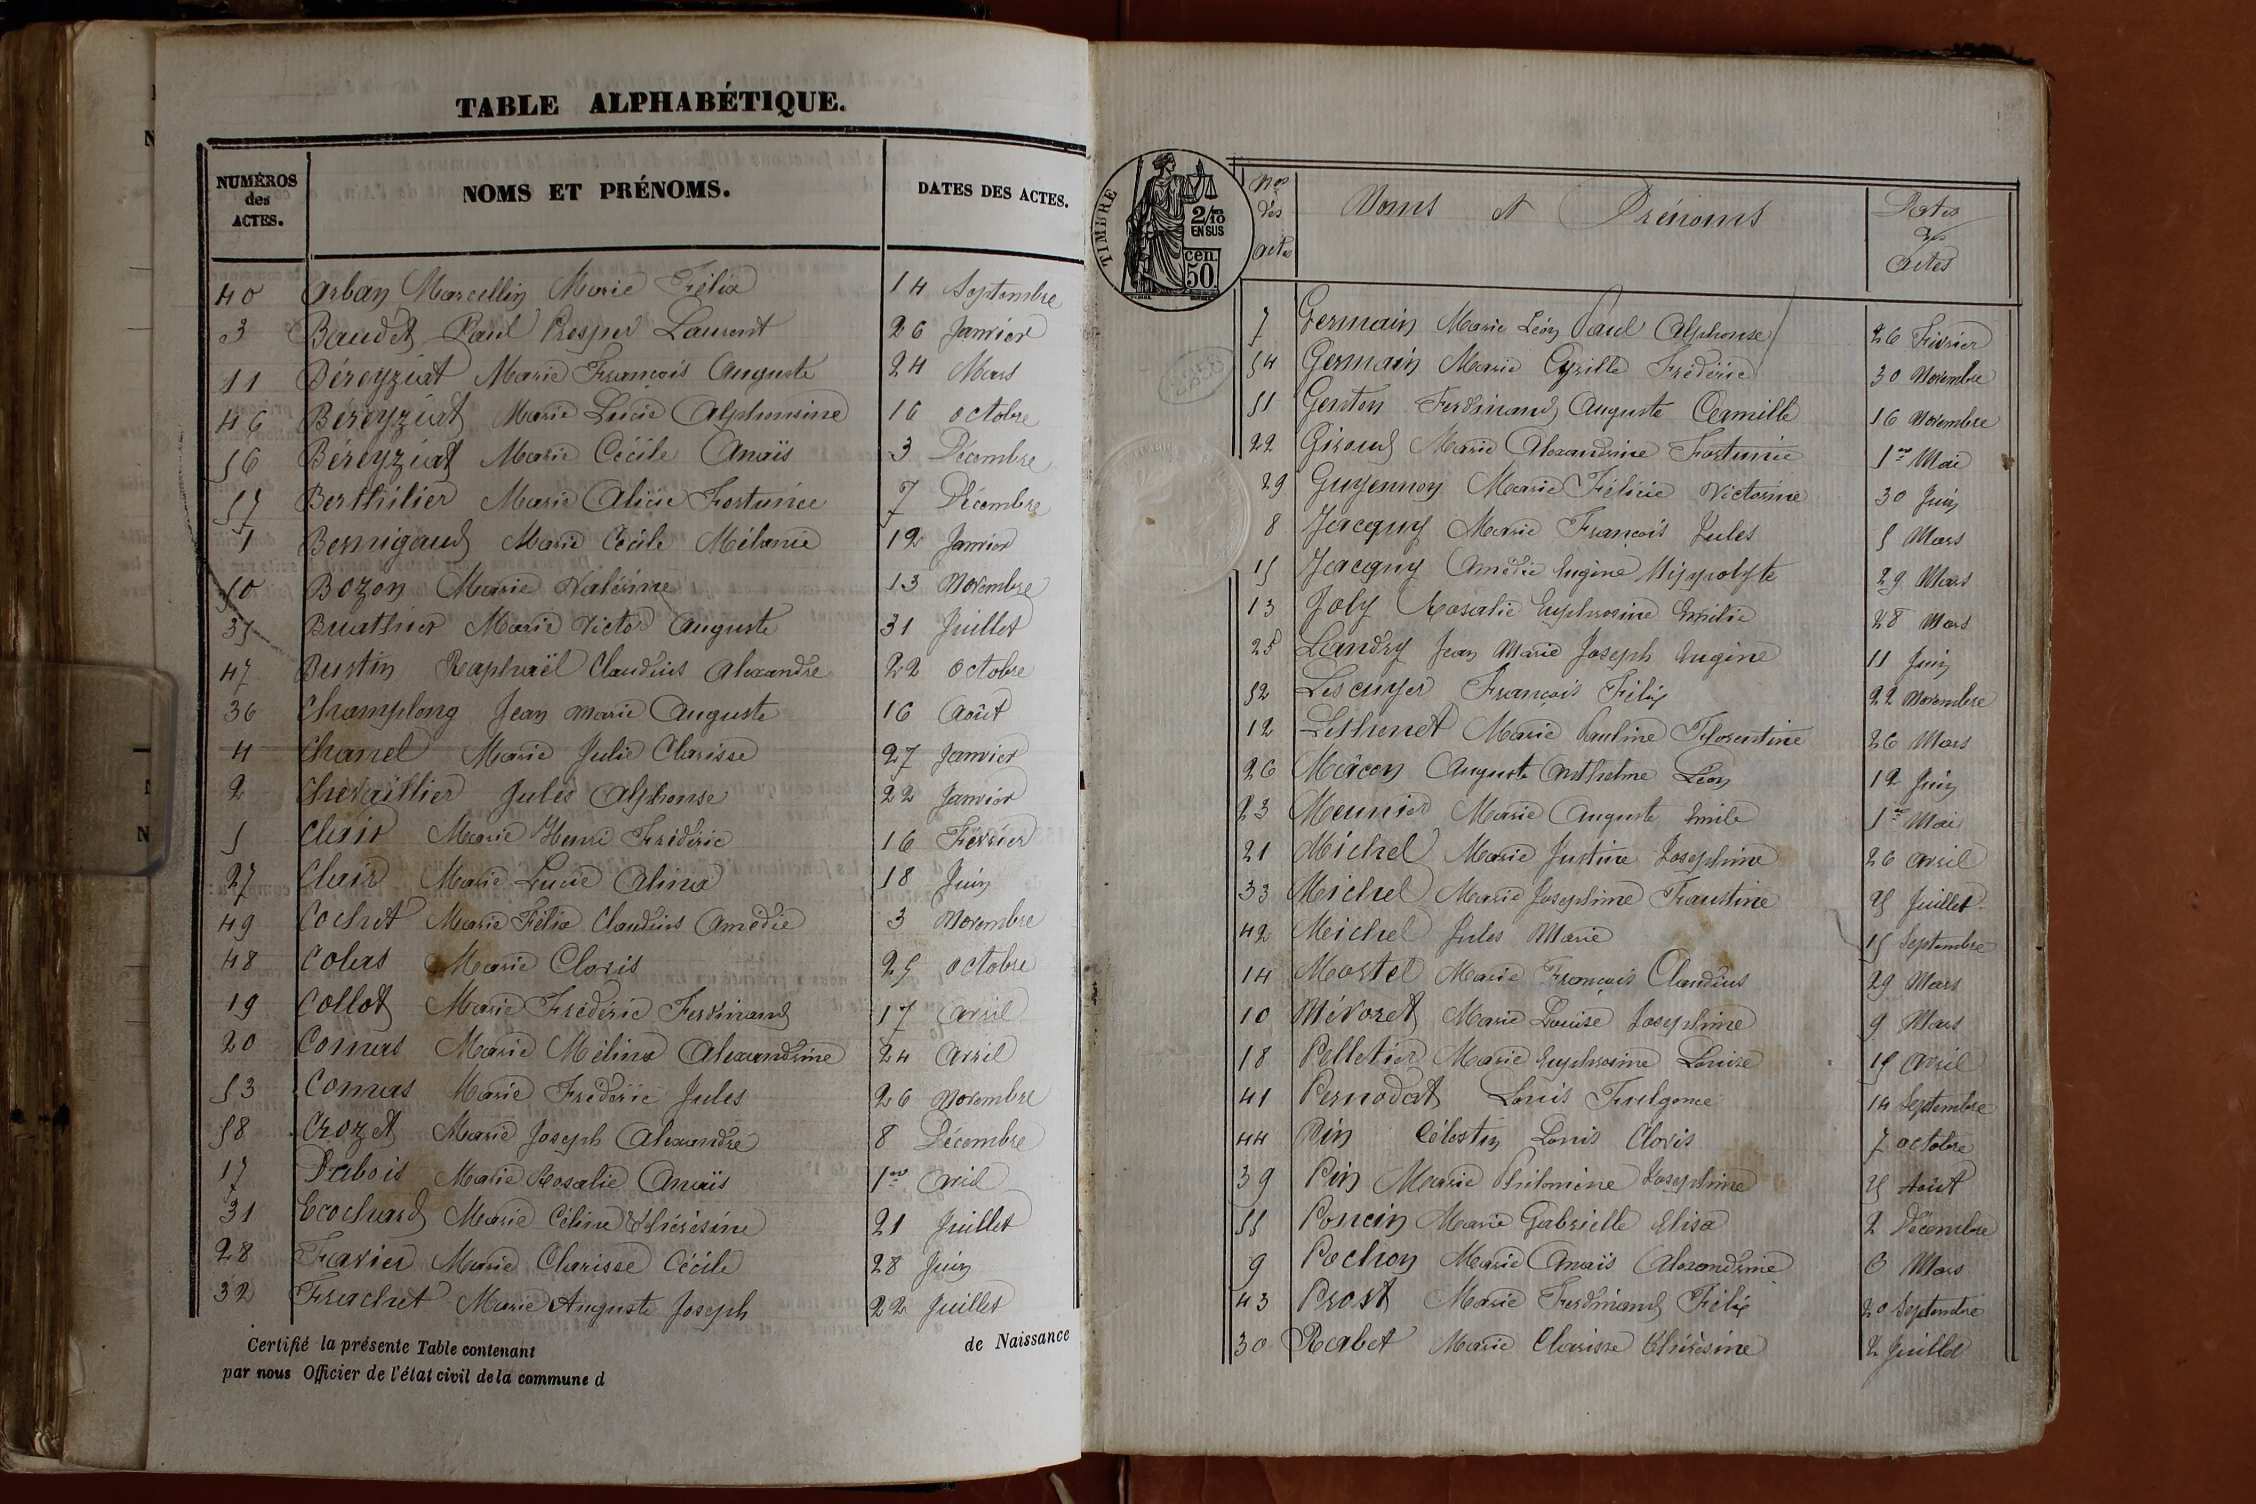 TABLE ALPHABÉTIQUE.
NUMÉROS des ACTES. NOMS ET PRÉNOMS. DATES DES ACTES.
40 Arban Marcellin Marie Félix 14 Septembre
3 Baudet Paul Prosper Laurent 26 Janvier
11 Béreyziat Marie François Auguste 24 Mars
46 Béreyziat Marie Lucie Alphonsine 16 octobre
56 Béreyziat Marie Cécile Anaïs 3 Décembre
57 Berthilier Marie Alice Fortunée 7 Décembre
1 Bernigaud Marie Cécile Mélanie 12 Janvier
50 Bozon Marie Valérine 13 Novembre
35 Buathier Marie Victor Auguste 31 Juillet
47 Burtin Raphaël Claudius Alexandre 22 octobre
36 Champlong Jean Marie Auguste 16 Août
4 Chanel Marie Julie Clarisse 27 Janvier
2 Chevaillier Jules Alphonse 22 Janvier
5 Clair Marie Henri Frédéric 16 Février
27 Clair Marie Lucie Alina 18 Juin
49 Cochet Marie Félix Claudius Amédée 3 Novembre
48 Colas Marie Clovis 25 octobre
19 Collot Marie Frédéric Ferdinand 17 avril
20 Comas Marie Mélina Alexandrine 24 avril
53 Comas Marie Frédéric Jules 26 Novembre
58 Crozet Marie Joseph Alexandre 8 Décembre
17 Dubois Marie Rosalie Anaïs 1er Avril
31 Ecochard Marie Céline Thérèsine 21 Juillet
28 Favier Marie Clarisse Cécile 28 Juin
32 Frachet Marie Auguste Joseph 22 Juillet
Certifié la présente Table contenant de Naissance
par nous Officier de l'état civil de la commune d
TIMBRE
2/10 EN SUS
cen. 50.
Nos des actes Noms et Prénoms Dates des actes
7 Germain Marie Léon Paul Alphonse 26 Février
54 Germain Marie Cyrille Frédéric 30 Novembre
51 Genton Ferdinand Auguste Camille 16 Novembre
22 Giroud Marie Alexandrine Fortunée 1er Mai
29 Guyennoy Marie Félicie Victorine 30 Juin
8 Jacquy Marie François Jules 5 Mars
15 Jacquy Amédée Eugène Hippolyte 29 Mars
13 Joly Rosalie Euphrosine Emélie 28 Mars
25 Landry Jean Marie Joseph Eugène 11 Juin
52 Lescuyer François Félix 22 Novembre
12 Lethenet Marie Pauline Florentine 26 Mars
26 Mâcon Auguste Anthelme Léon 12 Juin
23 Meunier Marie Auguste Emile 1er Mai
21 Michel Marie Justine Josephine 26 avril
33 Michel Marie Josephine Faustine 25 Juillet
42 Michel Jules Marie 15 Septembre
14 Mortel Marie François Claudius 29 Mars
10 Mévoret Marie Louise Josephine 9 Mars
18 Pelletier Marie Euphrosine Louise 15 avril
41 Pernodat Louis Fulgence 14 Septembre
44 Pin Célestin Louis Clovis 7 octobre
39 Pin Marie Philomène Josephine 25 Août
55 Poncin Marie Gabrielle Elisa 2 Décembre
9 Pochon Marie Anaïs Alexandrine 6 Mars
43 Prost Marie Ferdinand Félix 20 Septembre
30 Rabet Marie Clarisse Thérèsine 2 Juillet